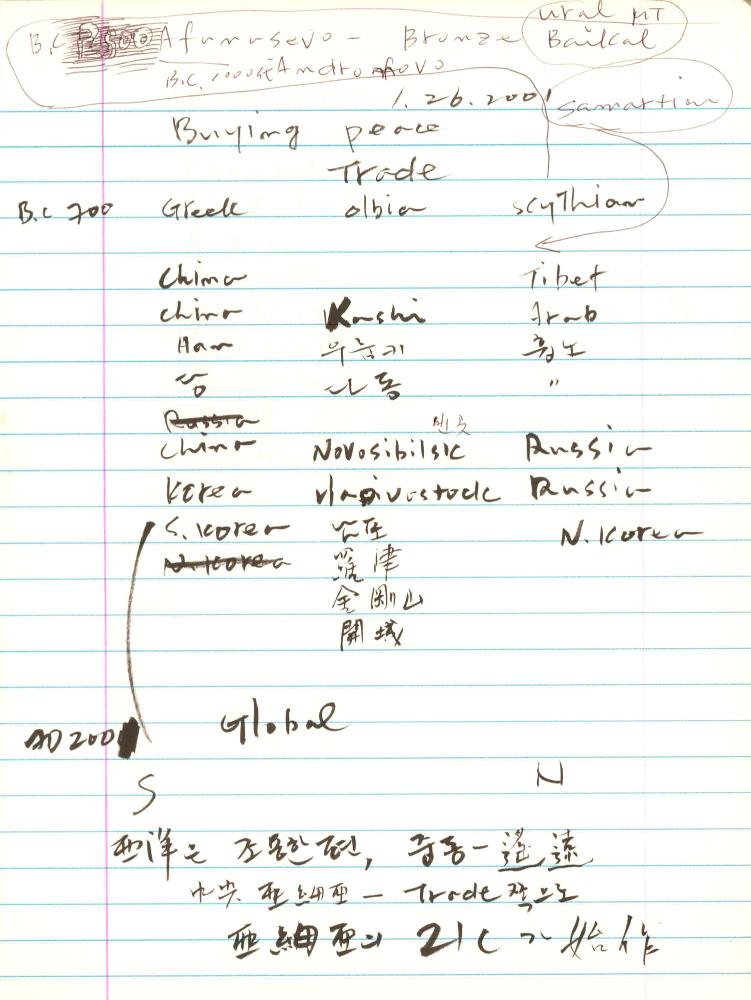 ural MT
B.C Afanasevo - Bronze Baikal
B.C. 1000代 Andronofovo
1. 26. 2001 Samartian
Buiying peace
Trade
B.C 700 Greek olbia scyThian
China Tibet
china Kashi Arab
Han 우룸키 흉노
당 나동 "
Russia
china Novosibilsk Russia
Korea vladivostock Russia
S. Korea N. Korea
N. Korea 羅津
金剛山
開城
AD 2001 Global
S N
西洋은 조용한 편, 중동-遙遠
中央 亜細亜 - Trade 쪽으로
亜細亜의 21C가 始作